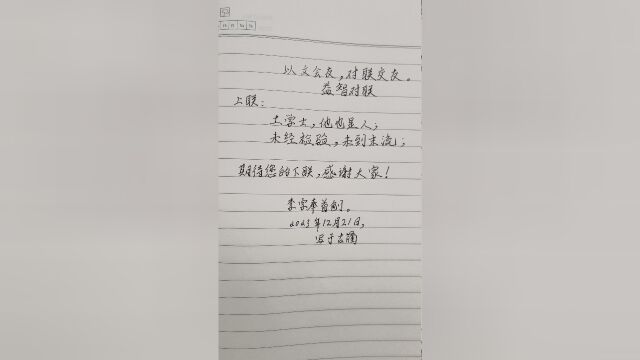 以文会友,对联交友。
益智对联
上联:
土学士,他也是人;
未经检验,未到末流;
期待您的下联,感谢大家!
李字奉首创。
2023年12月21日,
写于古蔺